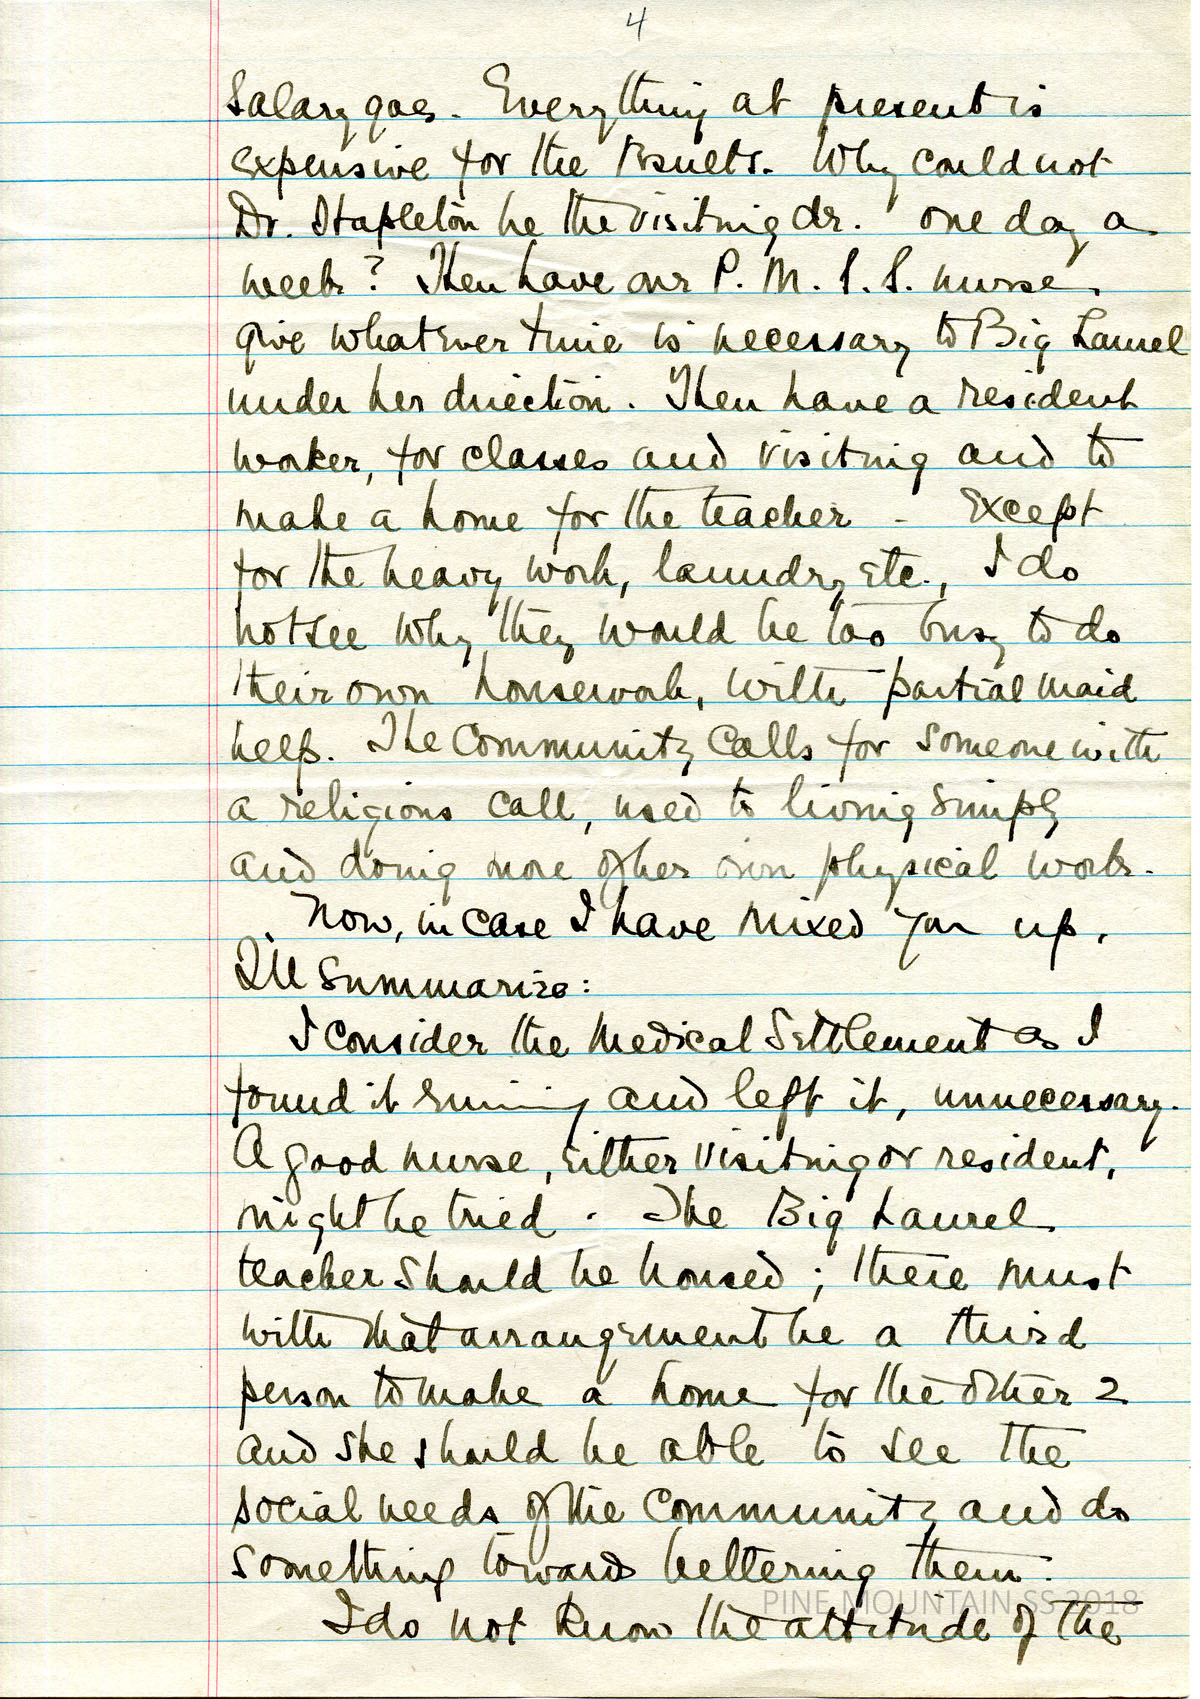 4
Salary goes. Everything at present is
expensive for the results. Why could not
Dr. Stapleton be the visiting dr. one day a
week? Then have our P. M. S. S. nurse
give whatever time is necessary to Big Laurel
under her direction. Then have a resident
worker, for classes and visiting and to
make a home for the teacher - Except
for the heavy work, laundry, etc., I do
not see why they would be too busy to do
their own housework, with partial maid
help. The community calls for someone with
a religious call, used to living simply
and doing more of her own physical work.
Now, in case I have mixed you up,
I'll summarize:
I consider the Medical Settlement as I
found it running and left it, unnecessary.
A good nurse, either visiting or resident,
might be tried. The Big Laurel
teacher should be housed; there must
with that arrangement be a third
person to make a home for the other 2
and she should be able to see the
social needs of the community and do
something towards bettering them.
PINE MOUNTAIN SS 2018
I do not know the attitude of the